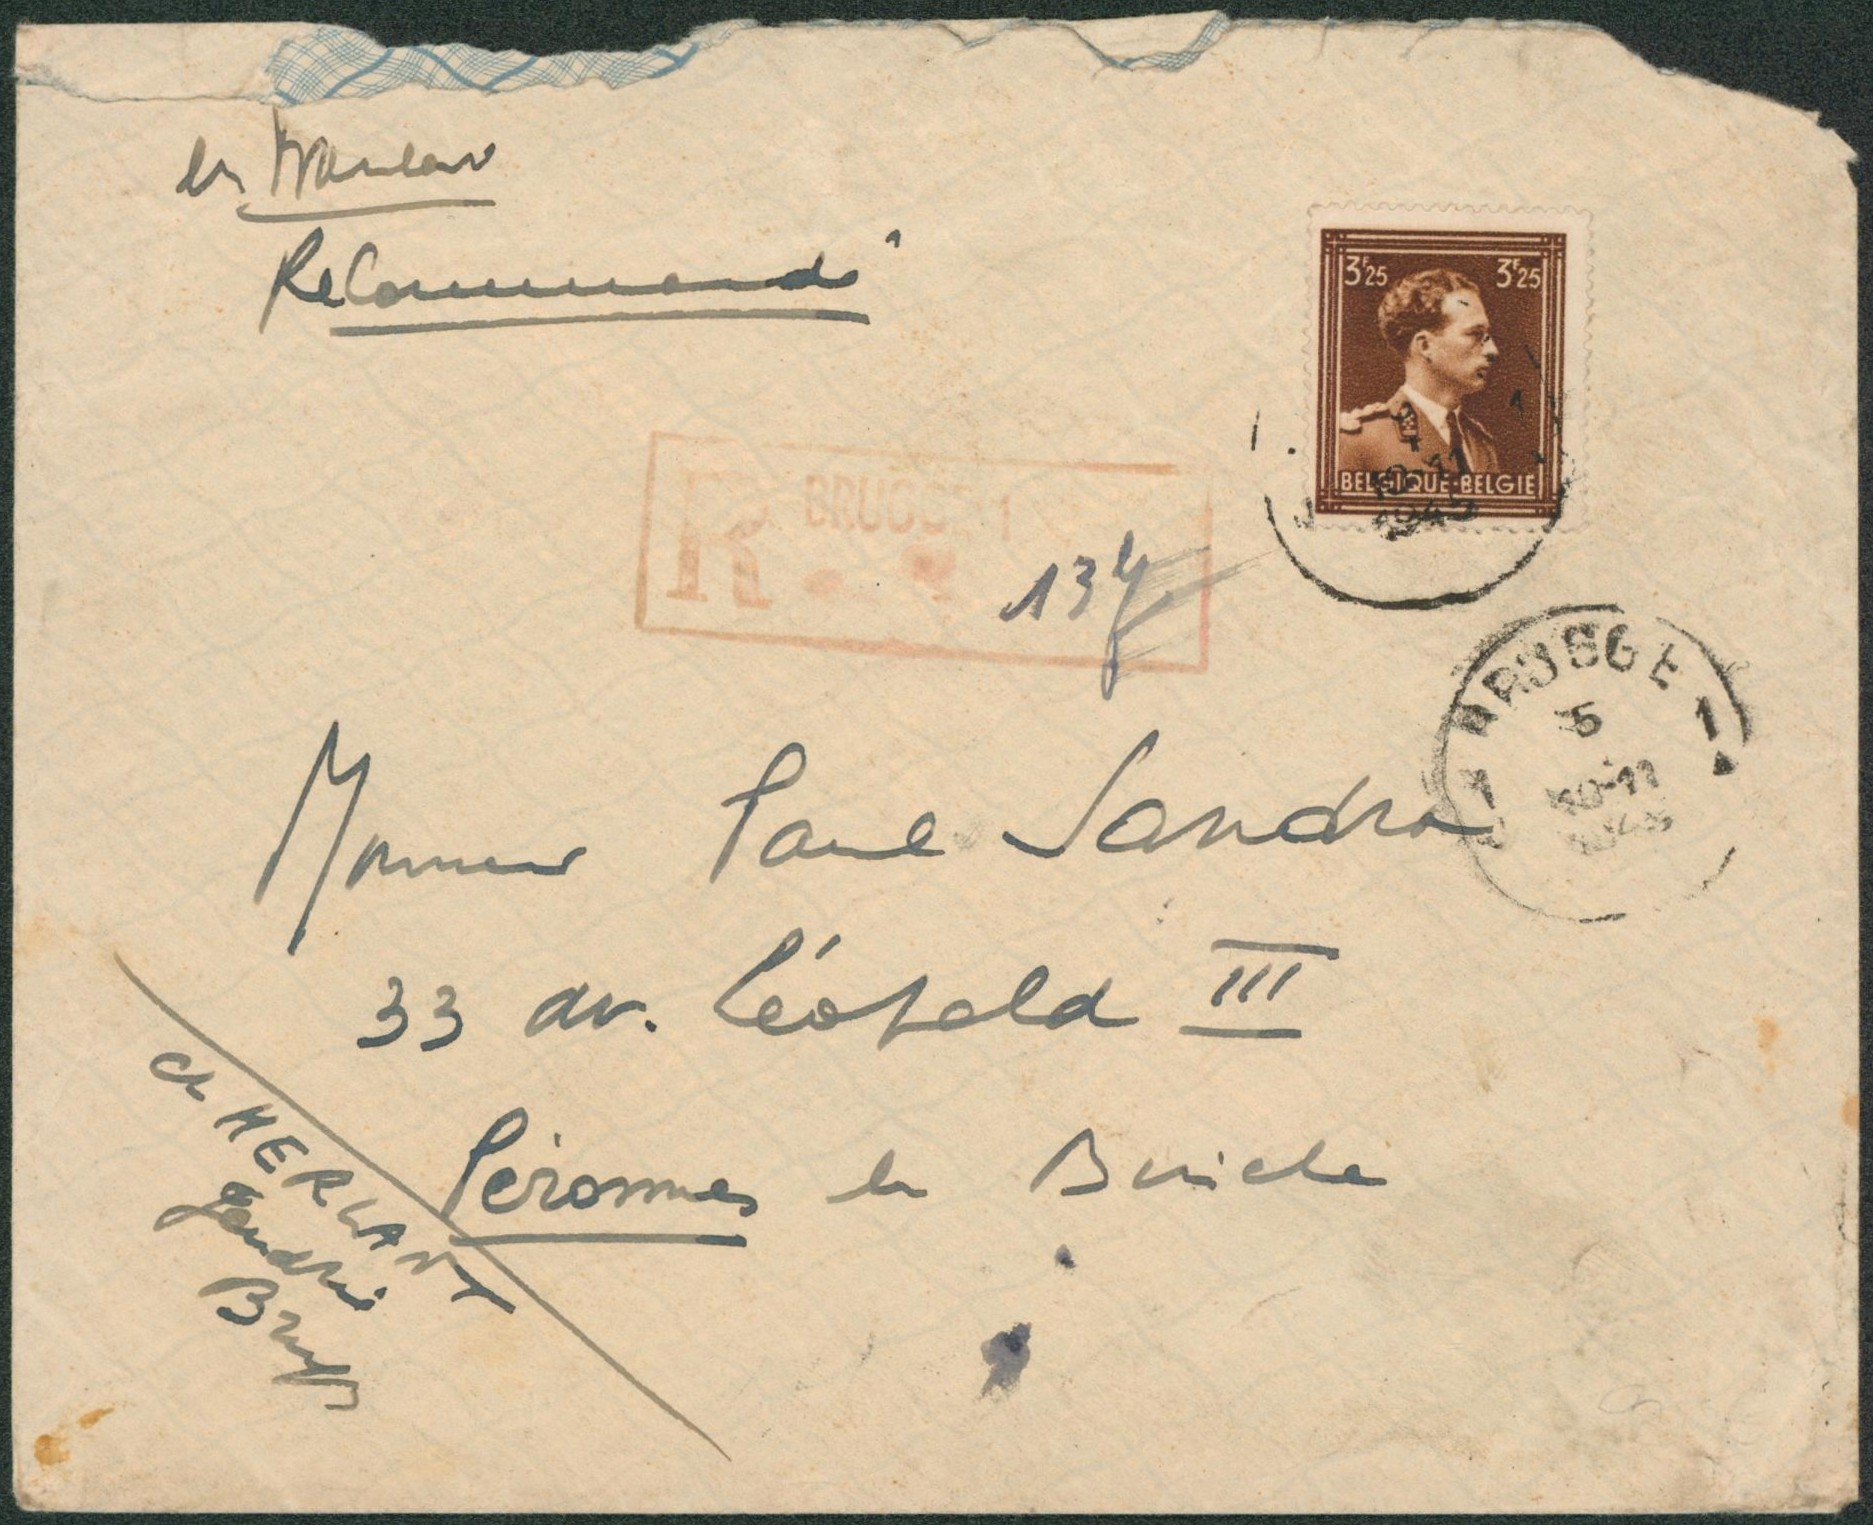 Recommandé
3F25 3F25
BELGIQUE·BELGIË
10-11
1945
R BRUGGE 1
137
BRUGGE 1
5
10-11
Monsieur Paul Sandra
33 av. Léopold III
Péronnes lz Binche
ch HERLANT
Gendrie